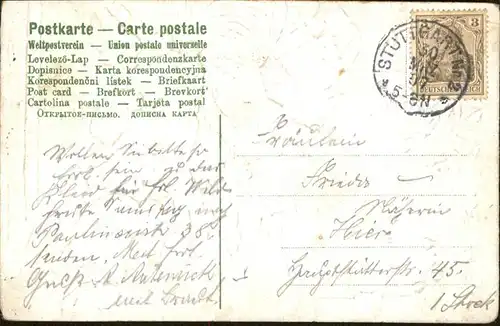 Postkarte — Carte postale
Weltpostverein — Union postale universelle
Levelező-Lap — Correspondenzkarte
Dopisnice — Karta korespondencyjna
Korespondenční lístek — Briefkaart
Post card — Brefkort — Brevkort
Cartolina postale — Tarjeta postal
Открытое-письмо. дописна карта
STUTTGART
5-6N
3
DEUTSCHES REICH
Wollen Sie bitte so
frdl. sein zu das
Kleid für frl.
heute Samstag nach
Paulinenstr. 38
senden. Mit frdl.
Gruß
Fräulein
Frieda
Näherin
Hier
Hauptstätterstr. 45.
1 Stock